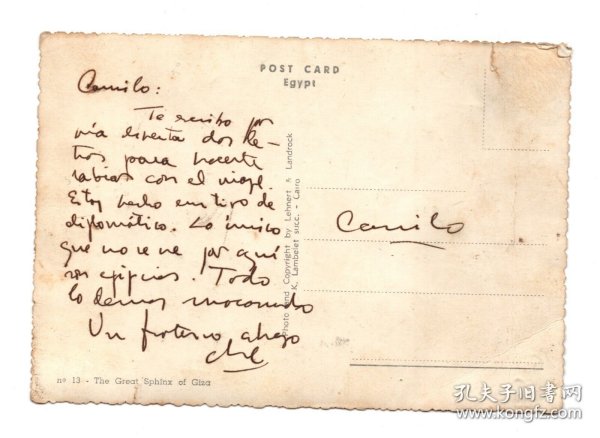 POST CARD
Egypt
Camilo:
Te escribo por
vía directa dos le-
tras para hacerte
rabiar con el viaje.
Estoy hecho un tipo de
diplomático. Lo único
que no se ve por aquí
son egipcias. Todo
lo demás
Un fraterno abrazo
Che
Camilo
Photo and Copyright by Lehnert & Landrock
K. Lambelet succ. - Cairo
nº 13 - The Great Sphinx of Giza
孔夫子旧书网
www.kongfz.com